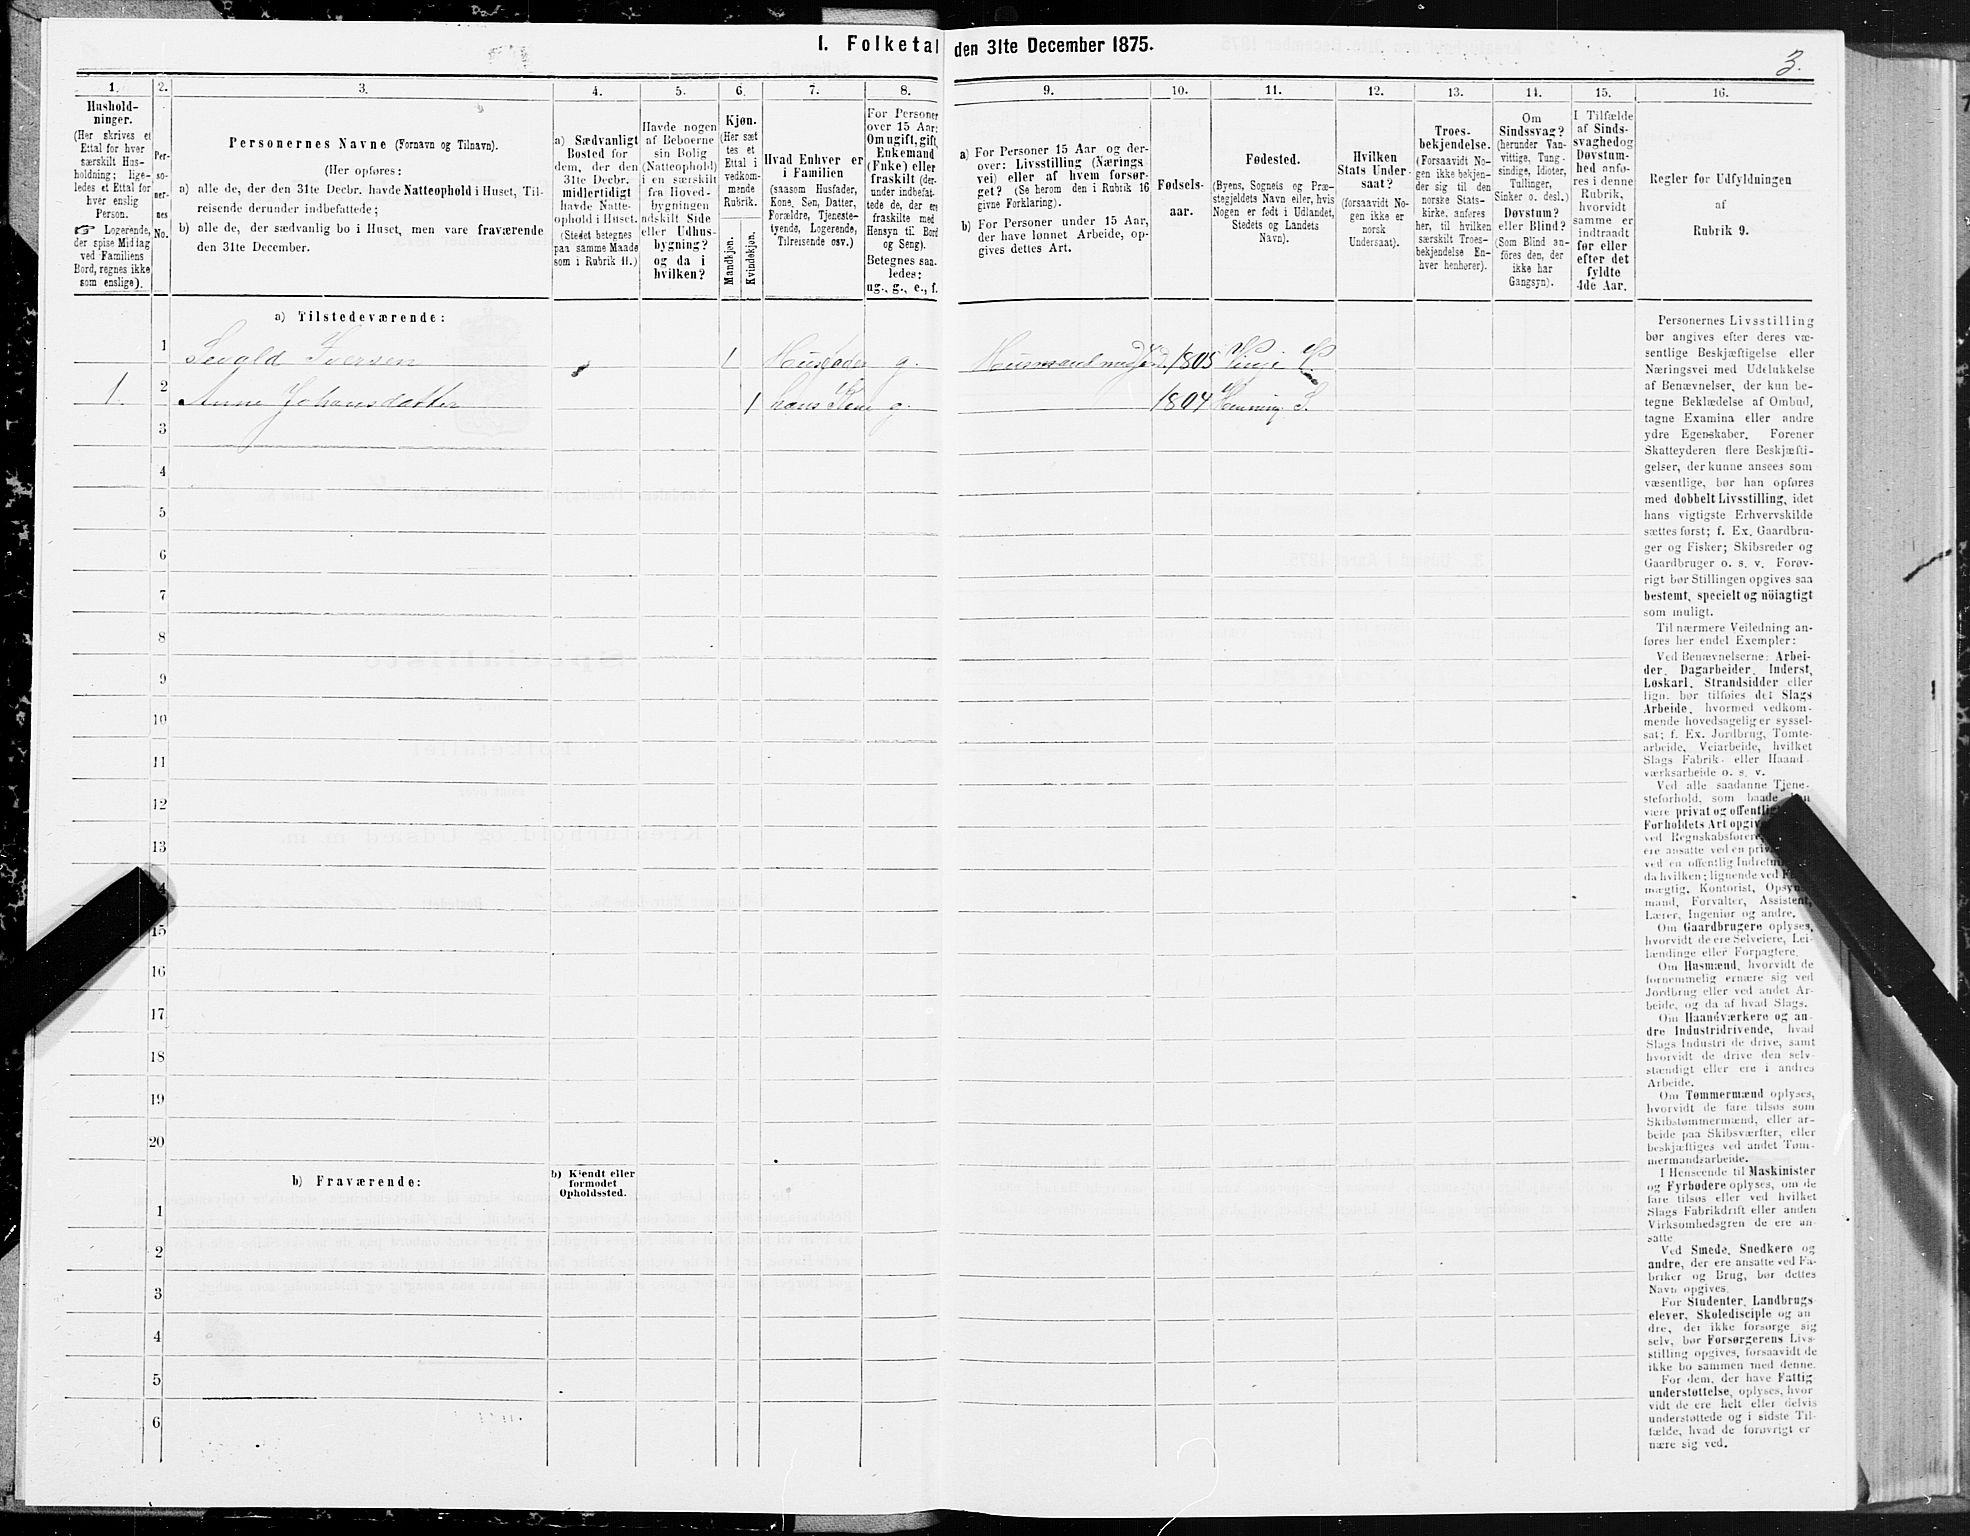 1. Folketal den 31te December 1875.
3.
1.
Hushold-
ninger.
(Her skrives et
Ettal for hver
særskilt Hus-
holdning; lige-
ledes et Ettal for
hver enslig
Person.
☞ Logerende,
der spise Middag
ved Familiens
Bord, regnes ikke
som enslige).
2.
Per-
so-
ner-
nes
No.
3.
Personernes Navne (Fornavn og Tilnavn).
(Her opføres:
a) alle de, der den 31te Decbr. havde Natteophold i Huset, Til-
reisende derunder indbefattede;
b) alle de, der sædvanlig bo i Huset, men vare fraværende
den 31te December.
4.
a) Sædvanligt
Bosted for
dem, der den
31te Decbr.
midlertidigt
havde Natte-
ophold i Huset.
(Stedet betegnes
paa samme Maade
som i Rubrik 11.)
5.
Havde nogen
af Beboerne
sin Bolig
(Natteophold)
i en særskilt
fra Hoved-
bygningen
adskilt Side
eller Udhus-
bygning?
og da i
hvilken?
6.
Kjøn.
(Her sæt
tes et
Ettal i
vedkom-
mende
Rubrik.
Mandkjøn.
Kvindekjøn.
7.
Hvad Enhver er
i Familien
(saasom Husfader,
Kone, Søn, Datter,
Forældre, Tjeneste-
tyende, Logerende,
Tilreisende osv.)
8.
For Personer
over 15 Aar:
Om ugift, gift,
Enkemand
(Enke) eller
fraskilt (der-
under indbefat-
tede de, der ere
fraskilte med
Hensyn til Bord
og Seng).
Betegnes saa-
ledes:
ug., g., e., f.
9.
a) For Personer 15 Aar og der-
over: Livsstilling (Nærings-
vei) eller af hvem forsør-
get? (Se herom den i Rubrik 16
givne Forklaring).
b) For Personer under 15 Aar,
der have lønnet Arbeide, op-
gives dettes Art.
10.
Fødsels-
aar.
11.
Fødested.
(Byens, Sognets og Præ-
stegjeldets Navn eller, hvis
Nogen er født i Udlandet,
Stedets og Landets
Navn).
12.
Hvilken
Stats Under-
saat?
(forsaavidt No-
gen ikke er
norsk
Undersaat).
13.
Troes-
bekjendelse.
(Forsaavidt No-
gen ikke bekjen-
der sig til den
norske Stats-
kirke, anføres
her, til hvilken
særskilt Troes-
bekjendelse En-
hver henhører).
14.
Om
Sindssvag?
(herunder Van-
vittige, Tung-
sindige, Idioter,
Tullinger,
Sinker o. desl.)
Døvstum?
eller Blind?
(Som Blind an-
føres den, der
ikke har
Gangsyn).
15.
I Tilfælde
af Sinds-
svaghed og
Døvstum-
hed anfø-
res i denne
Rubrik,
hvorvidt
samme er
indtraadt
før eller
efter det
fyldte
4de Aar.
16.
Regler for Udfyldningen
af
Rubrik 9.
a) Tilstedeværende:
1 Sevald Iversen 1 Husfader g. 1805 Vinne S.
1. 2 Anne Johansdatter 1 hans Kone g. 1804 Henning S.
3
4
5
6
7
8
9
10
11
12
13
14
15
16
17
18
19
20
b) Fraværende:
b) Kjendt eller
formodet
Opholdssted.
1
2
3
4
5
6
Personernes Livsstilling
bør angives efter deres væ-
sentlige Beskjæftigelse eller
Næringsvei med Udelukkelse
af Benævnelser, der kun be-
tegne Beklædelse af Ombud,
tagne Examina eller andre
ydre Egenskaber. Forener
Skatteyderen flere Beskjæfti-
gelser, der kunne ansees som
væsentlige, bør han opføres
med dobbelt Livsstilling, idet
hans vigtigste Erhvervskilde
sættes først; f. Ex. Gaardbru-
ger og Fisker; Skibsreder og
Gaardbruger o. s. v. Forøv-
rigt bør Stillingen opgives saa
bestemt, specielt og nöiagtigt
som muligt.
Til nærmere Veiledning an-
føres her endel Exempler:
Ved Benævnelserne: Arbei-
der, Dagarbeider, Inderst,
Løskarl, Strandsidder eller
lign. bør tilføies det Slags
Arbeide, hvormed vedkom-
mende hovedsagelig er syssel-
sat; f. Ex. Jordbrug, Tomte-
arbeide, Veiarbeide, hvilket
Slags Fabrik- eller Haand-
værksarbeide o. s. v.
Ved alle saadanne Tjene-
steforhold, som baade kan
være privat og offentlig
Forholdets Art opgives
ved Regnskabsfører
ere ansatte ved en privat
ved en offentlig Indretning
da hvilken; lignende ved
mægtig, Kontorist, Opsyns-
mand, Forvalter, Assistent,
Lærer, Ingeniør og andre.
Om Gaardbrugere oplyses,
hvorvidt de ere Selveiere, Lei-
lændinge eller Forpagtere.
Om Husmænd, hvorvidt de
fornemmelig ernære sig ved
Jordbrug eller ved andet Ar-
beide, og da af hvad Slags.
Om Haandværkere og an-
dre Industridrivende, hvad
Slags Industri de drive, samt
hvorvidt de drive den selv-
stændigt eller ere i andres
Arbeide.
Om Tømmermænd oplyses,
hvorvidt de fare tilsøs som
Skibstømmermænd, eller ar-
beide paa Skibsværfter, eller
beskjæftiges ved andet Tøm-
mermandsarbeide.
I Henseende til Maskinister
og Fyrbødere oplyses, om de
fare tilsøs eller ved hvilket
Slags Fabrikdrift eller anden
Virksomhedsgren de ere an-
satte
Ved Smede, Snedkere og
andre, der ere ansatte ved Fa-
briker og Brug, bør dettes
Navn opgives.
For Studenter, Landbrugs-
elever, Skoledisciple og an
dre, der ikke forsørge sig
selv, bør Forsørgerens Livs-
stilling opgives, forsaavidt de
ikke bo sammen med denne.
For dem, der have Fattig-
understøttelse, oplyses, hvor-
vidt de ere helt eller delvis
understøttede og i sidste Til-
fælde, hvad de forøvrigt er-
nære sig ved.